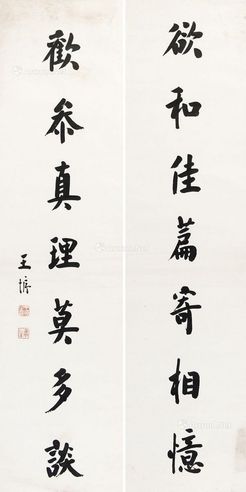 欲和佳篇寄相憶
歡參真理莫多談
王慎